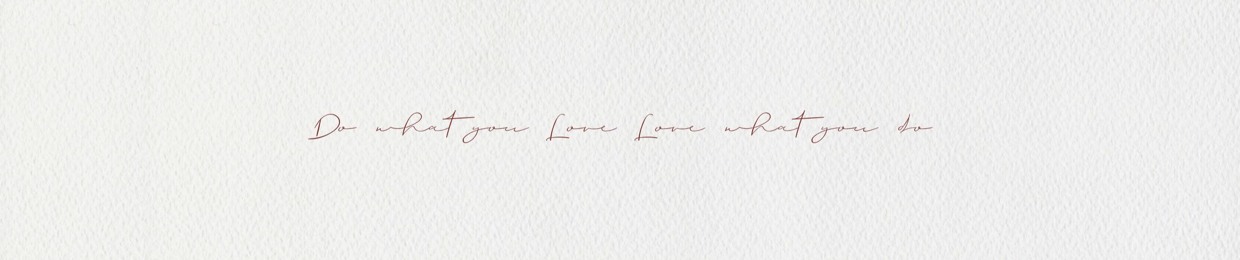 Do what you Love Love what you do